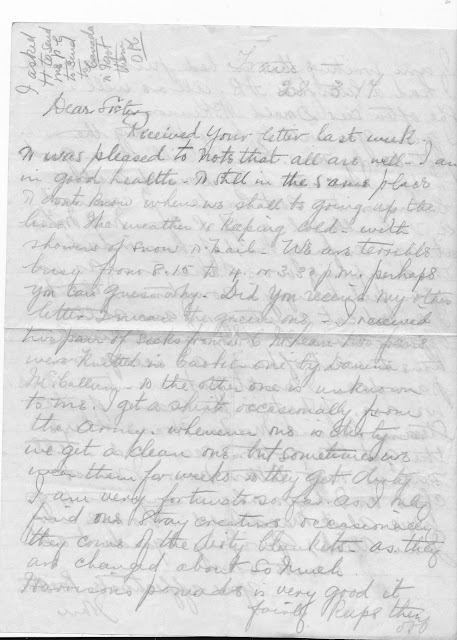 I asked
H to send
me P.C
to send
to Canada
& I got
them
O.K.
Dear Sister,
Received Your letter last week.
& was pleased to note that all are well- I am
in good health- & still in the same place
& dont know when we shall be going up the
line. The weather is keeping cold- with
showers of snow & hail- We are terrible
busy from 8-15 to 4. or 3.30 p.m. perhaps
you can guess why- Did You receive my other
letter I mean the green one- I received
two pair of socks from
were knitted in one by
McCallum- & the other one is unknown
to me. I get a shirt occasionally from
the army. whenever one is dirty
we get a clean one. but sometimes we
wear them for weeks & they get dirty
I am very fortunate so far as I only
find one stray creature occasionally
they come of the dirty blankets- as they
are changed about so much
Harrisons pomade is very good it
fairly keeps them
off